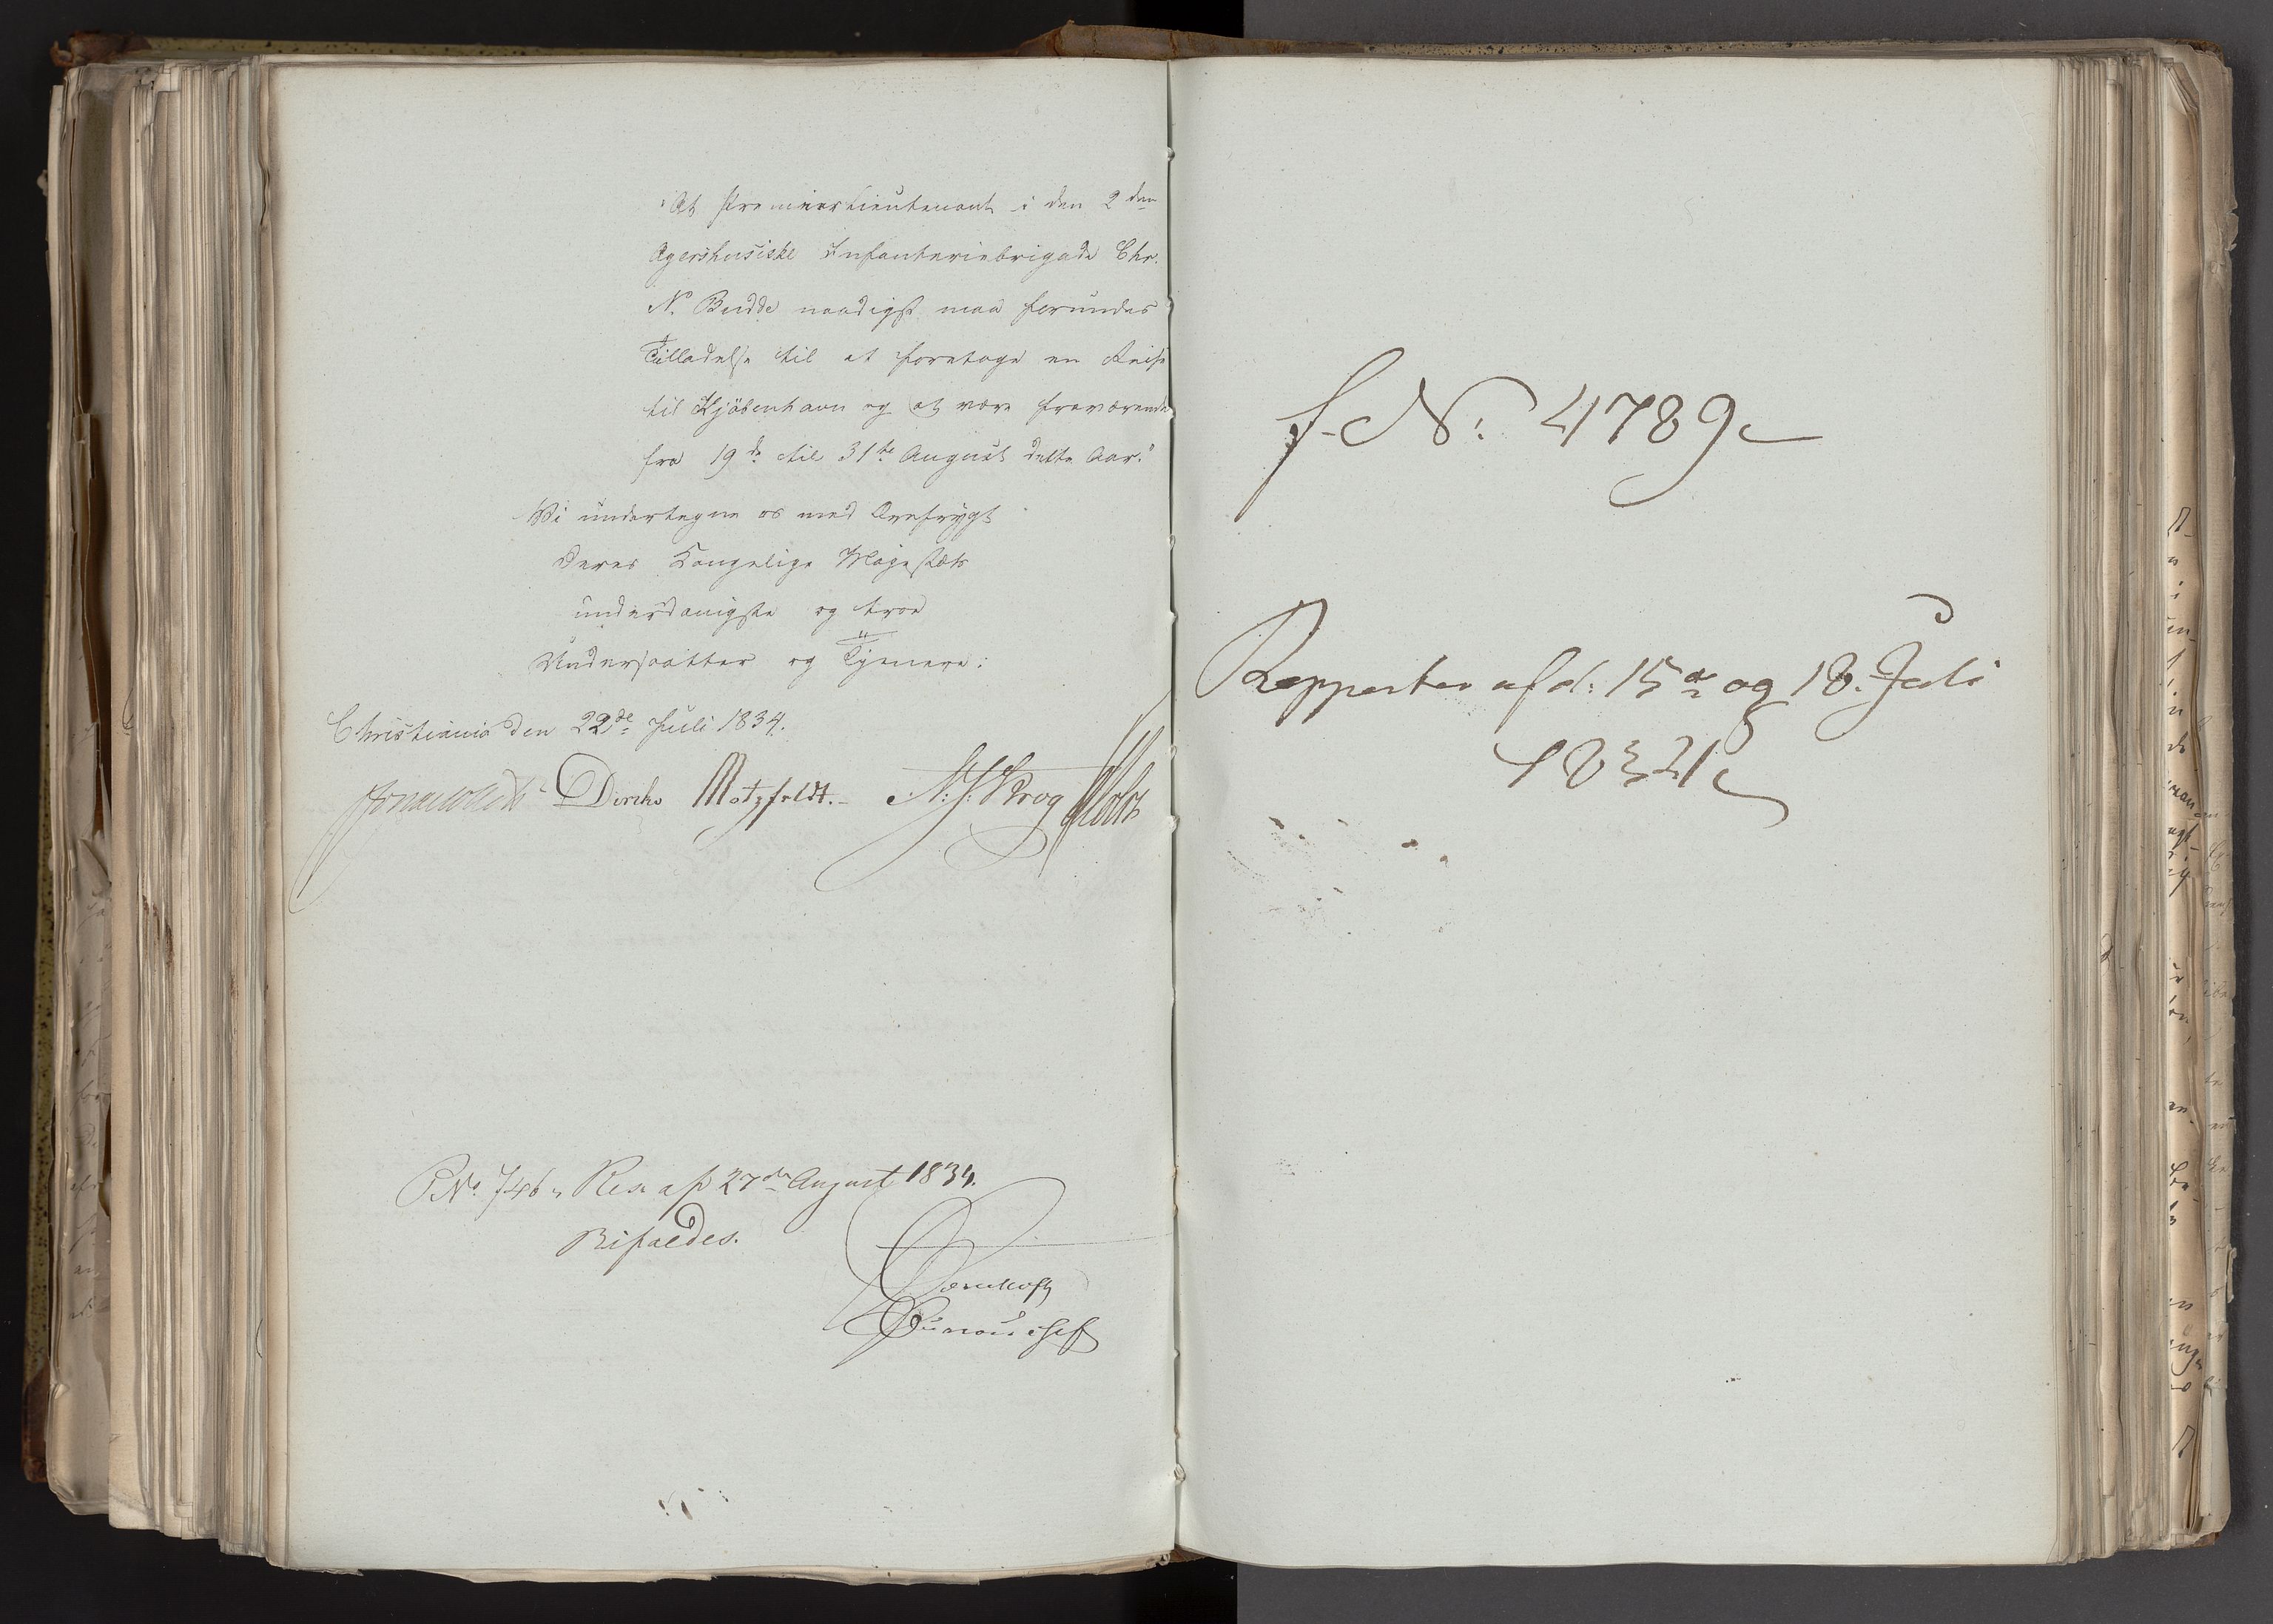 "At Premierlieutenant i den 2den
Agershusiske Infanteriebrigade Chr.
N. Budde naadigst maa forundes
Tilladelse til at foretage en Reise
til Kjöbenhavn og at være fraværende
fra 19de til 31te August dette Aar."
Vi undertegne os med Ærefrygt
Deres Kongelige Majestæts
underdanigste og troe
Undersaatter og Tjenere:
Christiania den 22de Juli 1834.
Diriks Motzfeldt. Krog Holst
No. 746, Res. af 27de August 1834.
Bifaldes.
Bureauchef
f. No: 4789
Rapporter af d: 15de og 18. Juli
1834